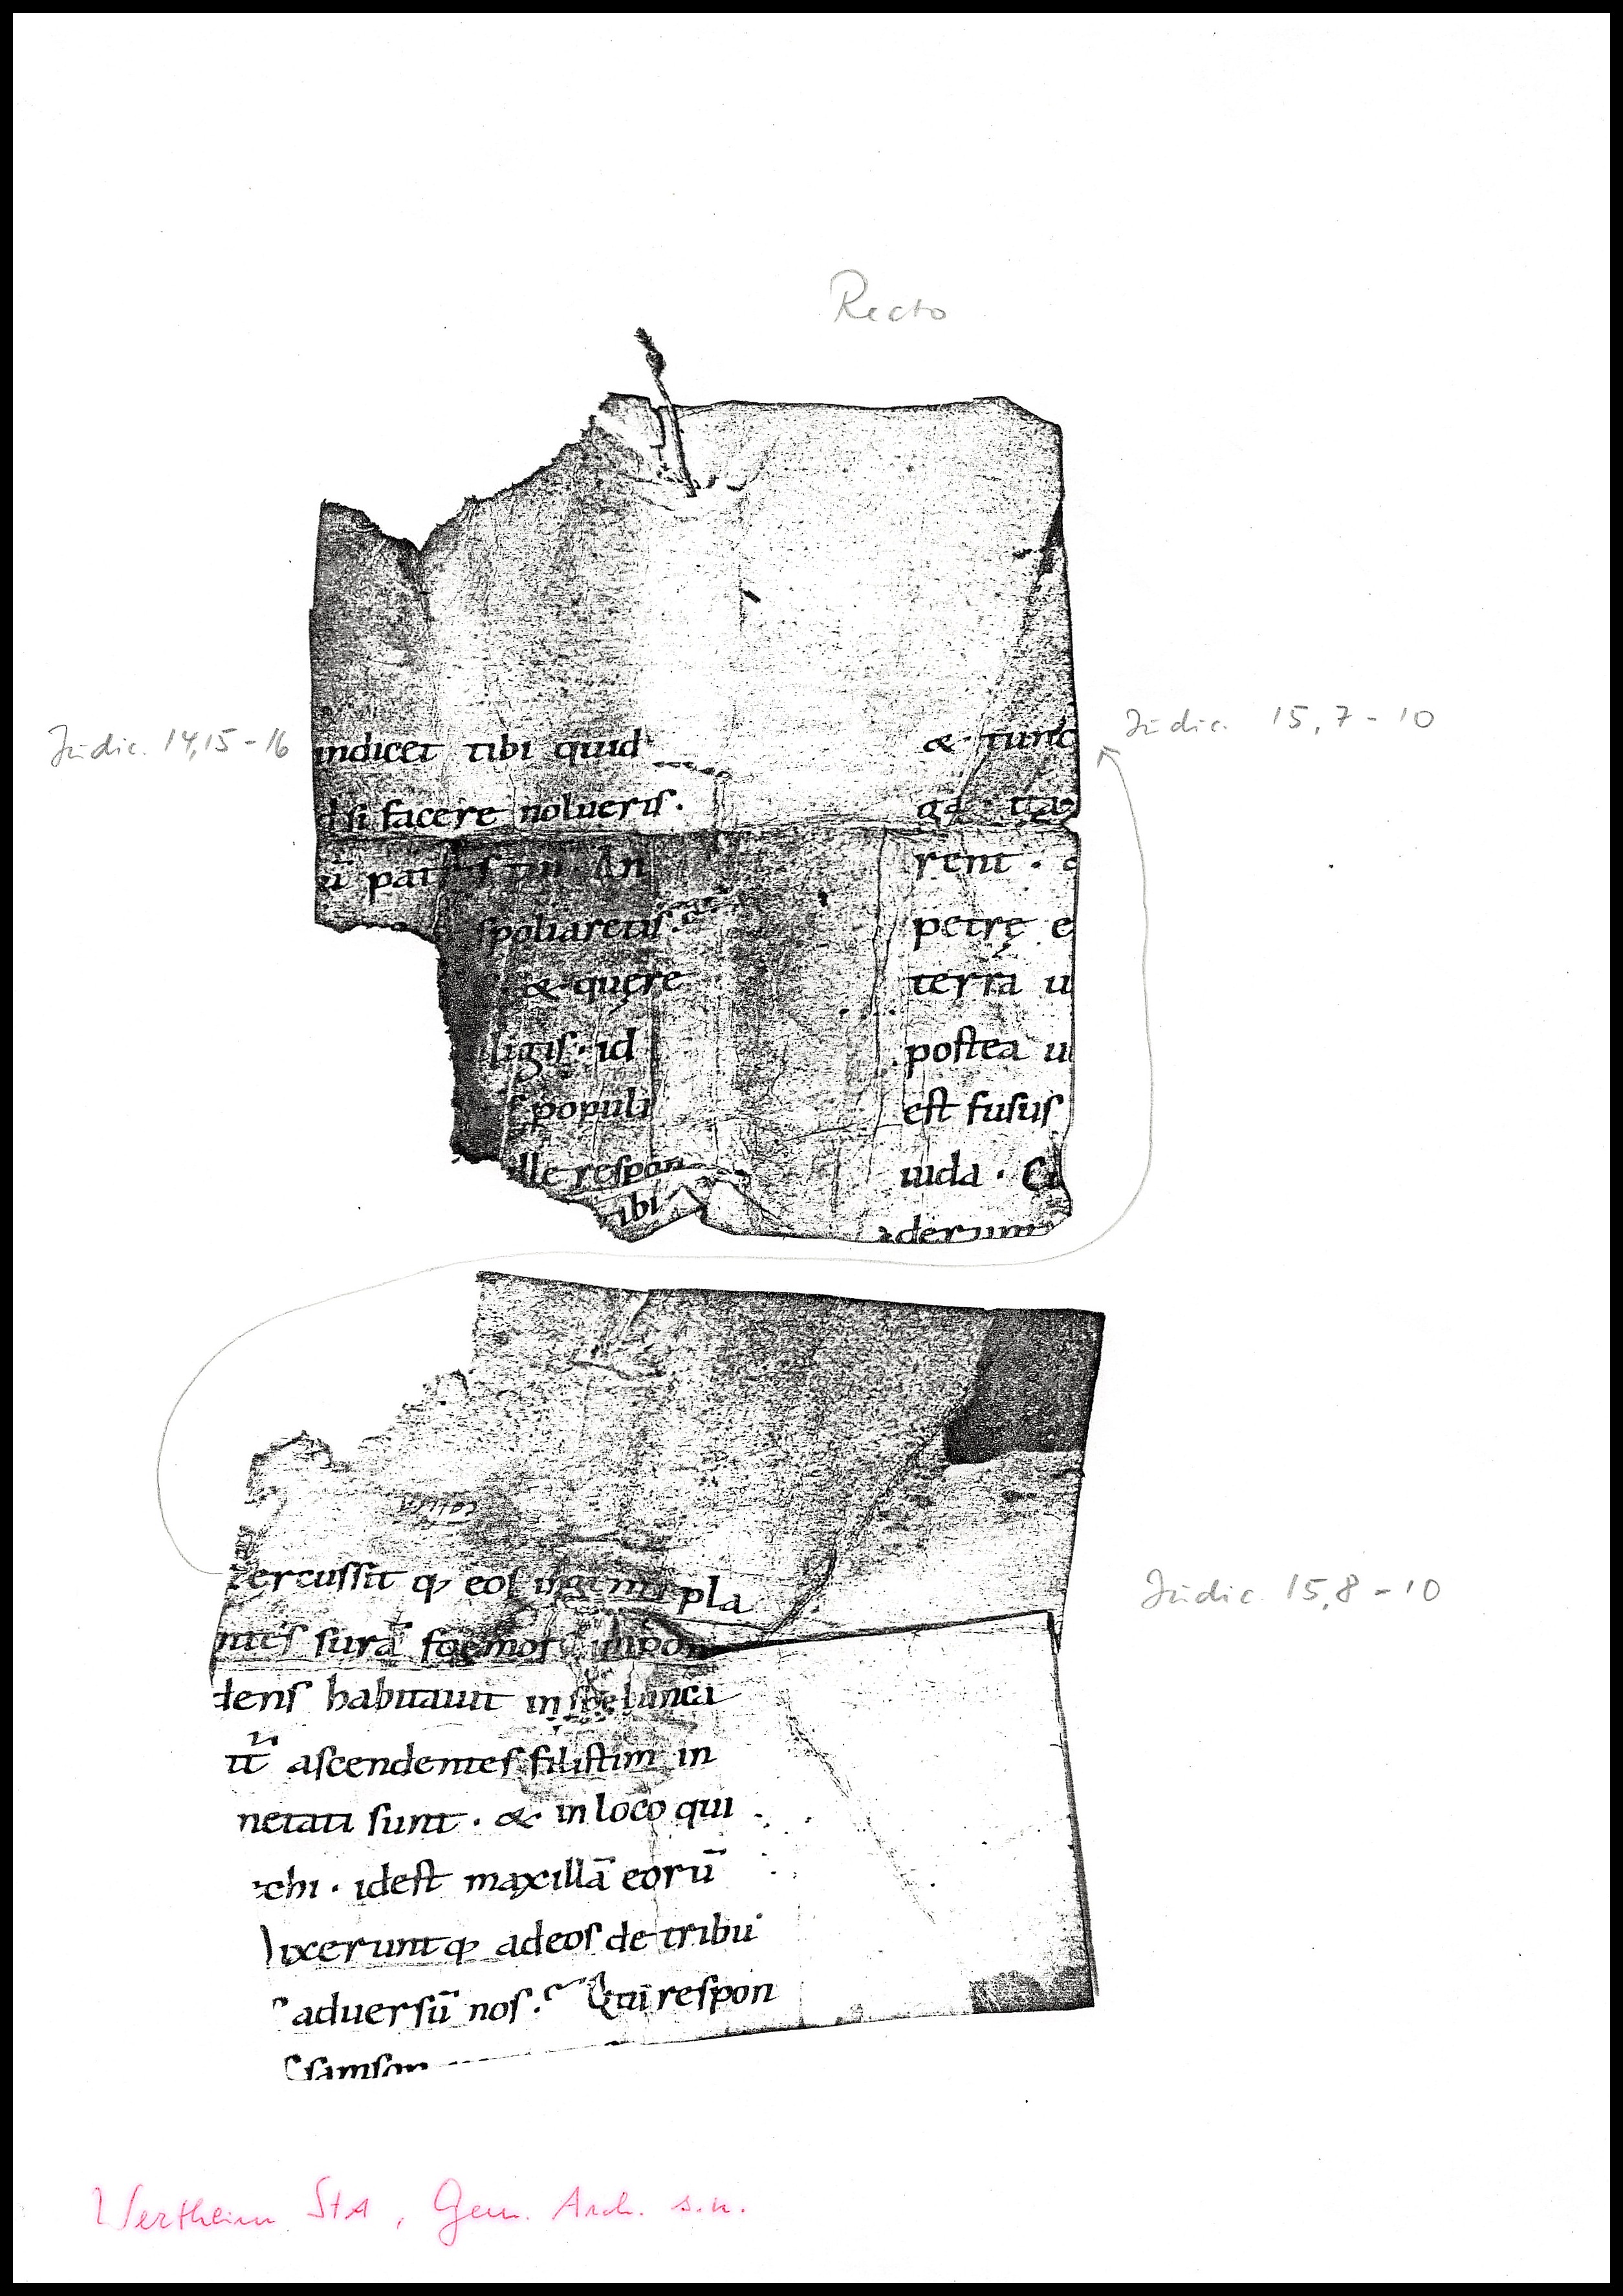 Recto
Judic. 14,15-16
indicet tibi quid
d si facere nolueris.
ū pat tui An
spoliaretis.
& quęre
ligis. id
populi
lle respon
ibi
Judic. 15,7-10
& tunc
rent .
petrę e
terra u
postea u
est fusus
iuda . Cu
derunt
ercussit q; eos pla
ntes surā impon
dens habitauit in spelunca
ascendentes filistim in
netati sunt . & in loco qui
chi . idest maxillā eorū
ixerunt q; adeos de tribu
aduersū nos. Qui respon
samson
Judic. 15,8-10
Wertheim StA, Gem. Arch. s.n.